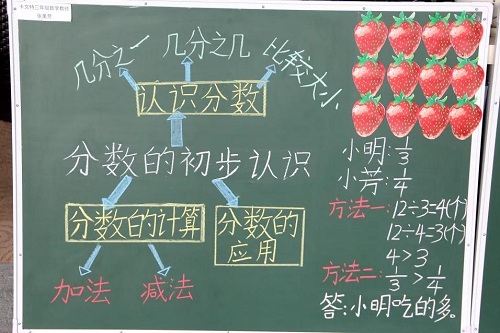 几分之一 几分之几 比较大小
认识分数
分数的初步认识
分数的计算
分数的
应用
加法 减法
小明:1/3
小芳:1/4
方法一:12÷3=4(个)
12÷4=3(个)
4>3
方法二:1/3>1/4
答:小明吃的多。